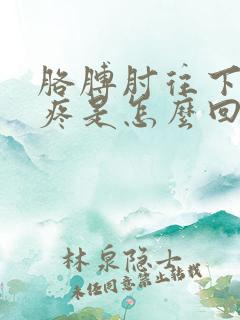 胳膊肘往下
疼是怎麼回
林泉隐士
未经同意禁止转载